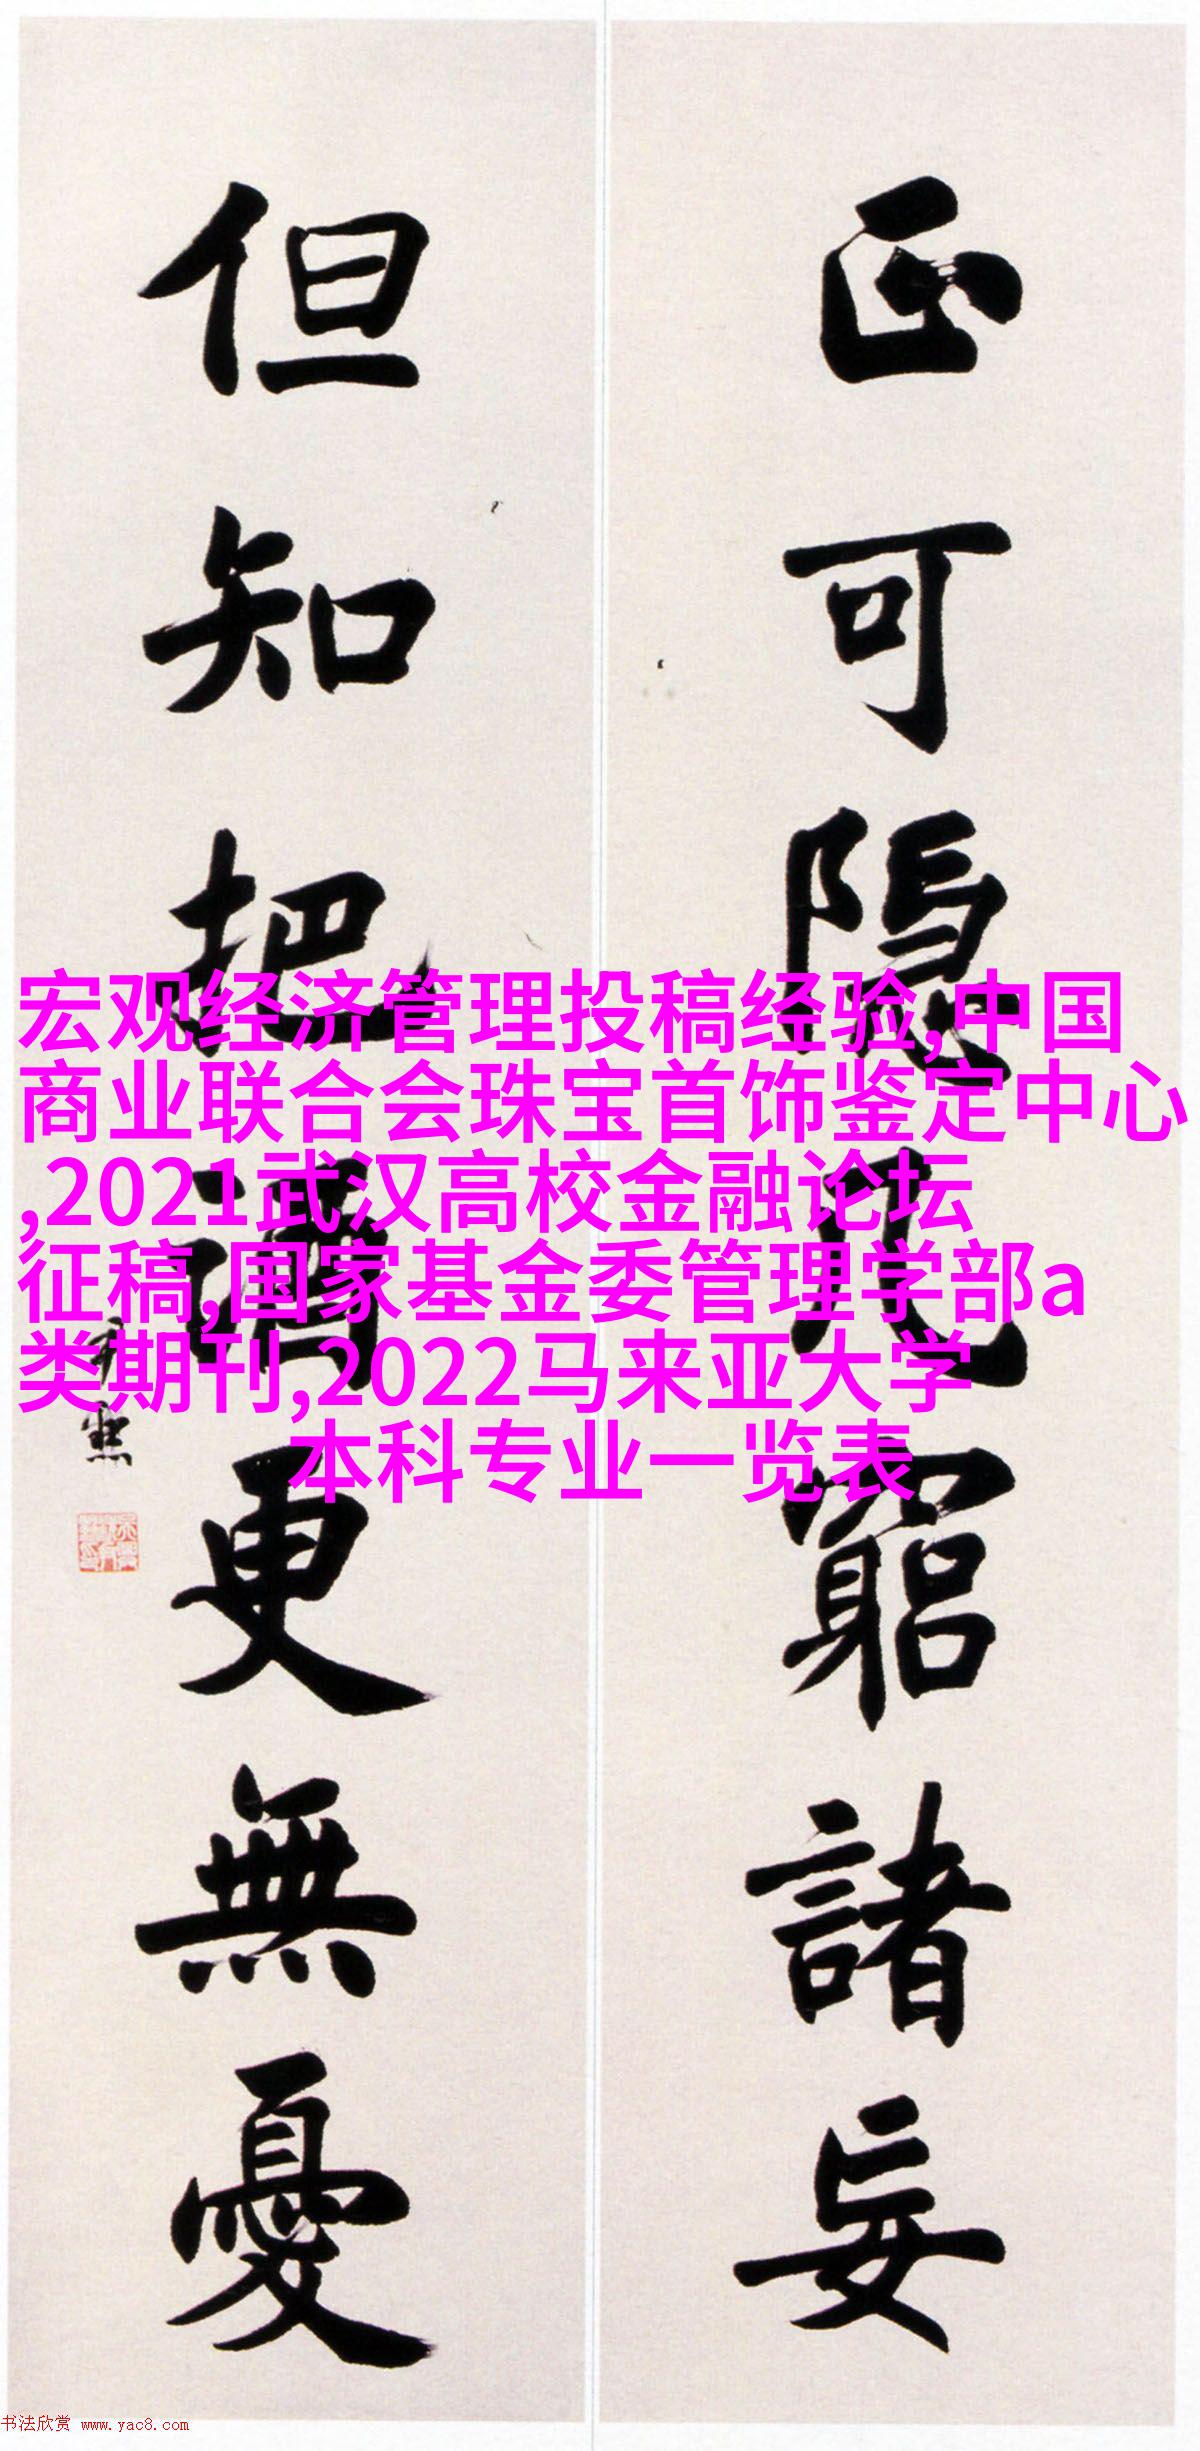 正可隱几窮諸妄
但知把更無憂
尹默
宏观经济管理投稿经验,中国
商业联合会珠宝首饰鉴定中心
,2021武汉高校金融论坛
征稿,国家基金委管理学部a
类期刊,2022马来亚大学
本科专业一览表
书法欣赏 www.yac8.com